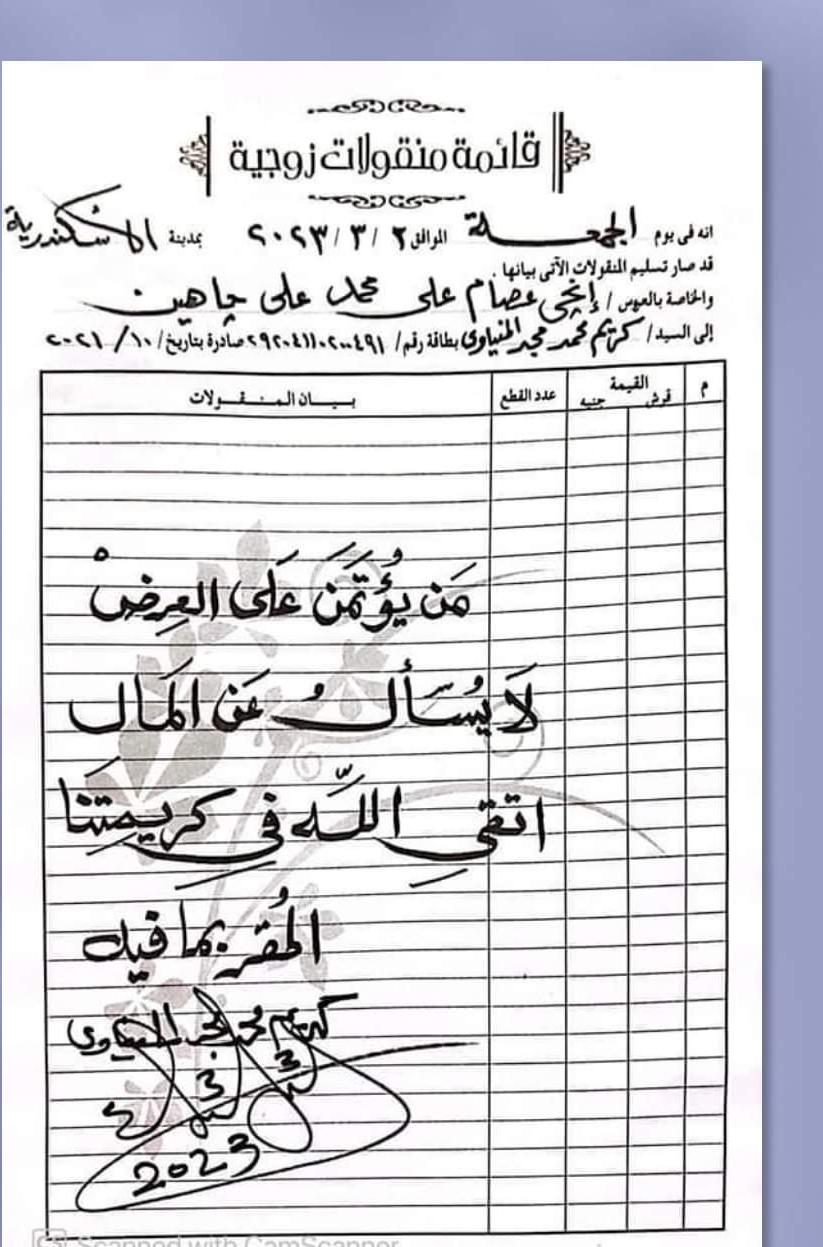 قائمة منقولات زوجية
انه فى يوم الجمعـــة الموافق ٣ / ٣ / ٢٠٢٣ بمدينة الاسكندرية
قد صار تسليم المنقولات الآتى بيانها
والخاصة بالعروس / إنجى عصام على محمد على جاهين
إلى السيد / كريم محمد مجد المنياوى بطاقة رقم / صادرة بتاريخ / ١٠ / ٢٠٢١
م القيمة عدد القطع بيـــان المنــقــولات
قرش جنيه
مَن يُؤتَمَن عَلى العِرضْ
لَا يُسَألُ عَن المَال
اتقي اللّه في كريمتنا
المُقر بما فيه
كريم محمد مجد المنياوى
2023
Scanned with CamScanner